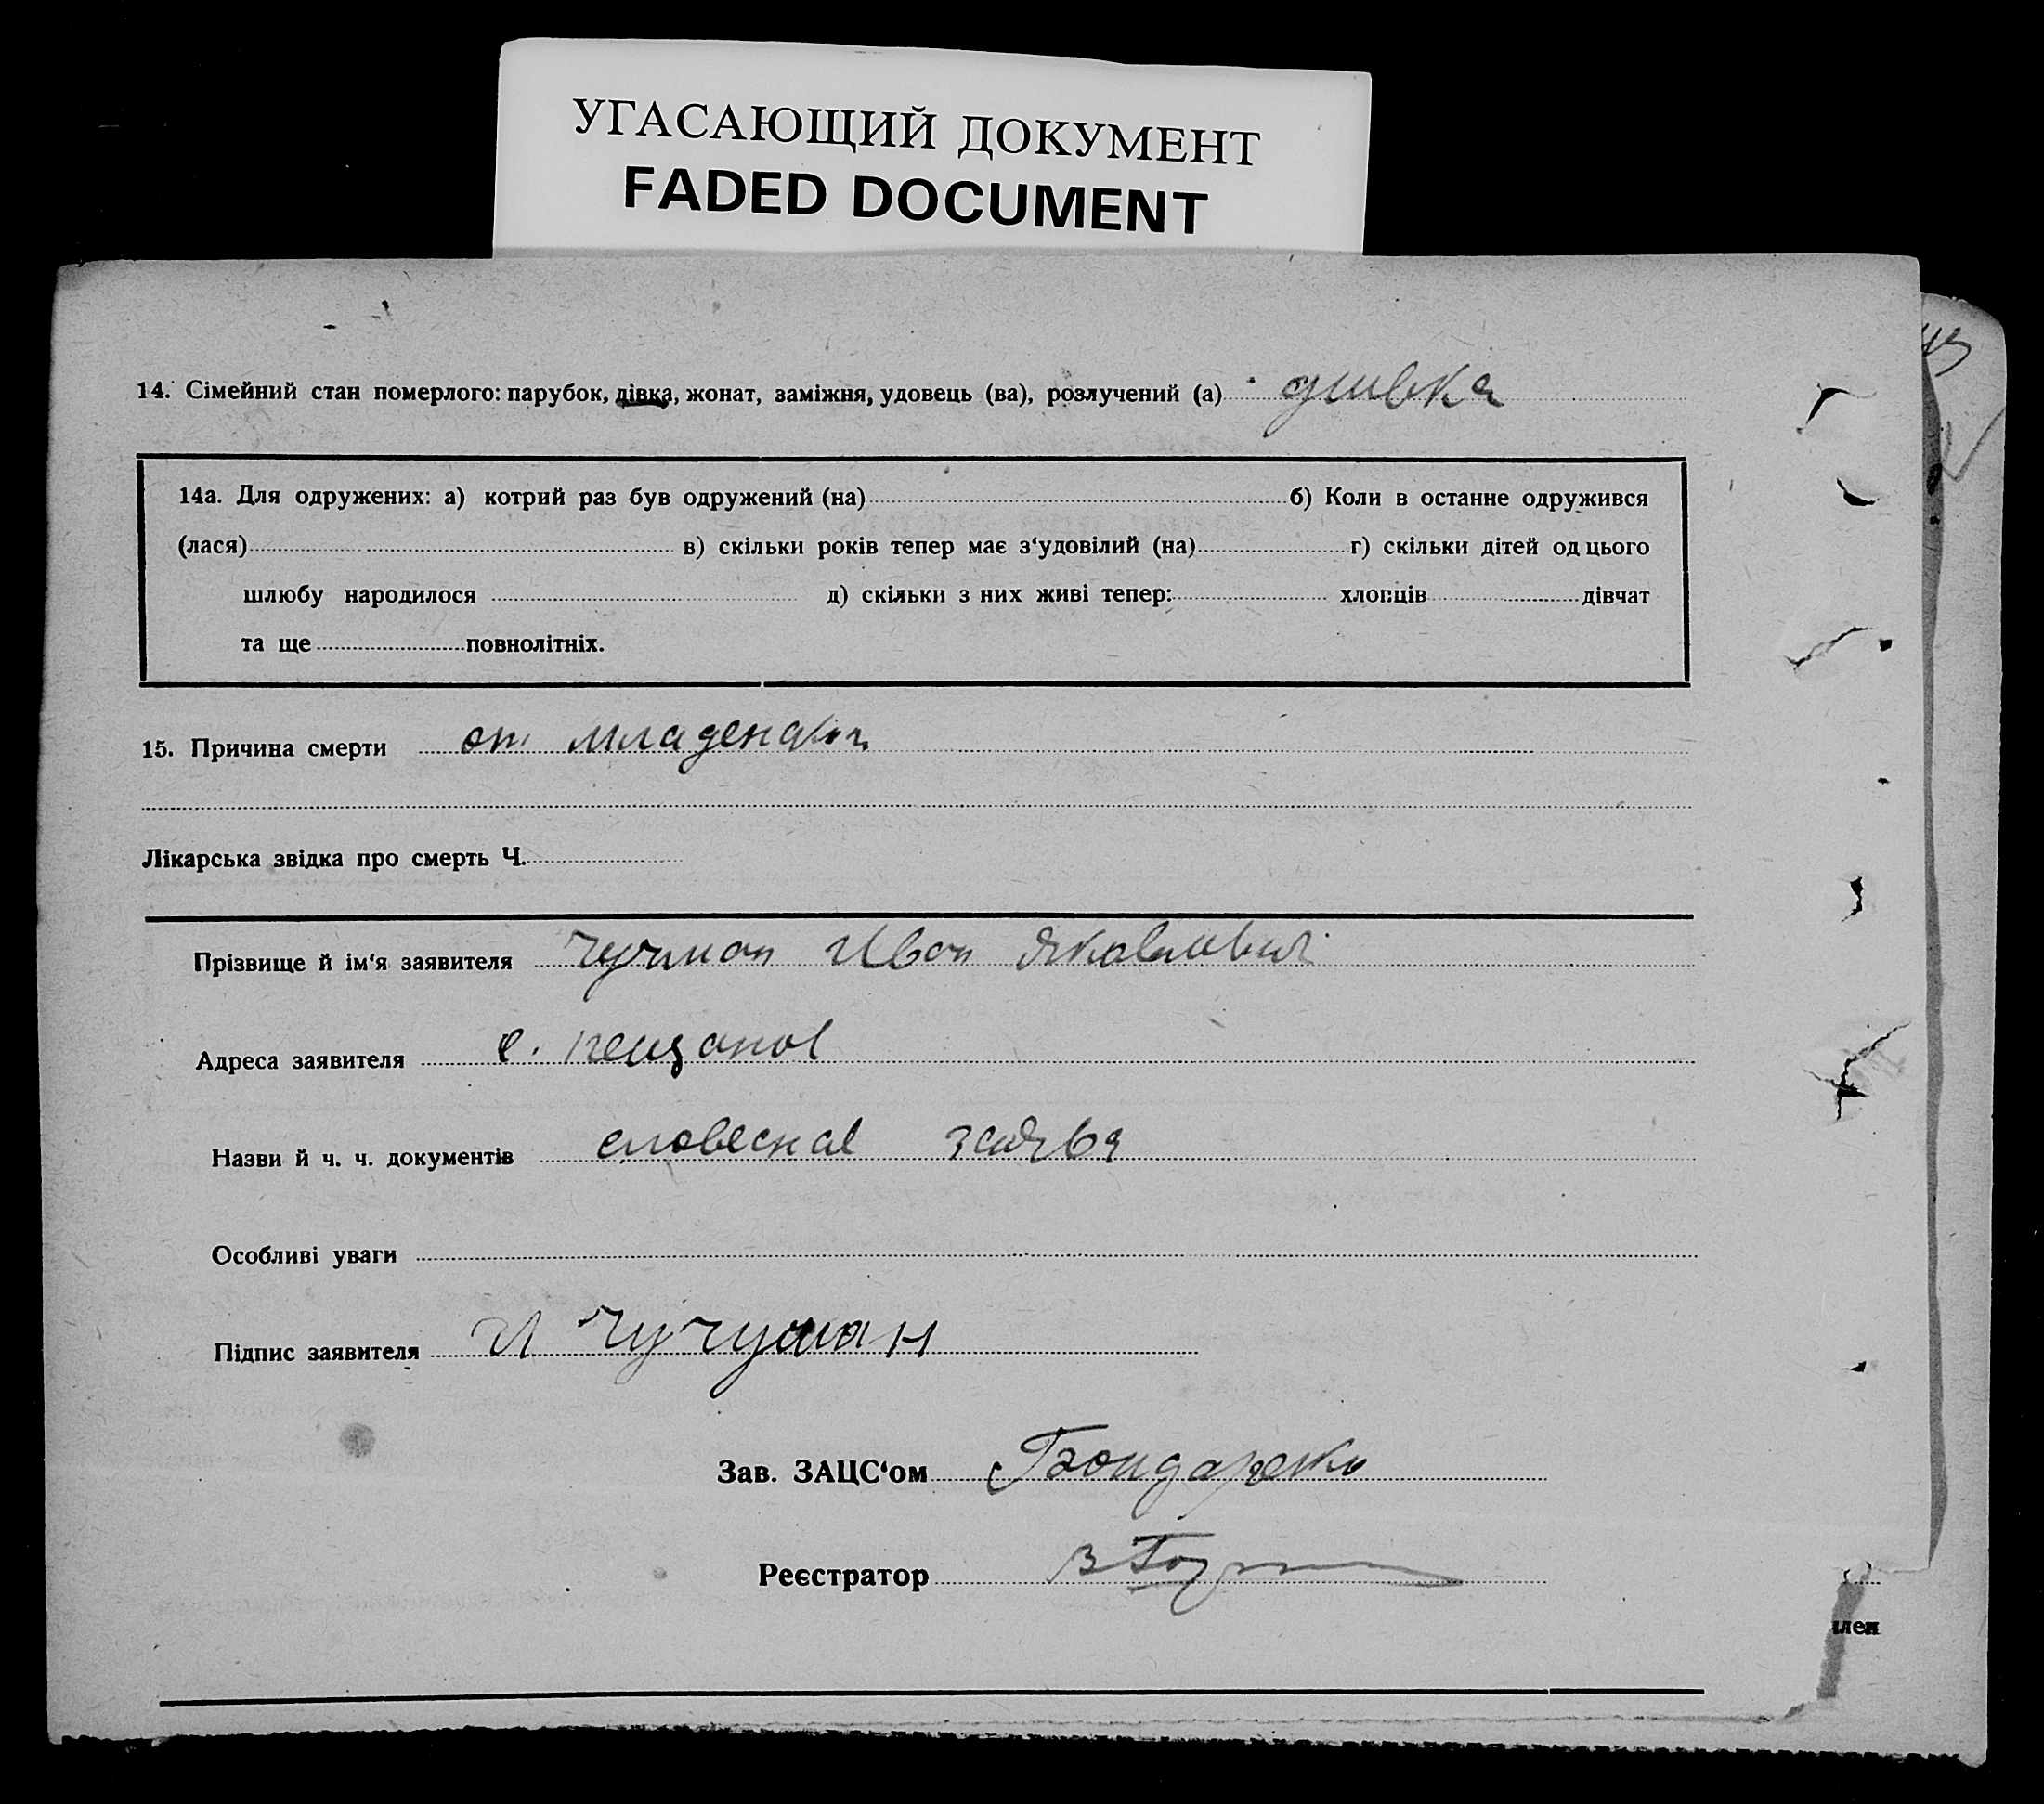 УГАСАЮЩИЙ ДОКУМЕНТ
FADED DOCUMENT
14. Сімейний стан померлого: парубок, дівка, жонат, заміжня, удовець (ва), розлучений (а) дивка
14а. Для одружених: а) котрий раз був одружений (на) б) Коли в останне одружився
(лася) в) скільки років тепер має з‘удовілий (на) г) скільки дітей од цього
шлюбу народилося д) скільки з них живі тепер: хлопців дівчат
та ще повнолітніх.
15. Причина смерти от
Лікарська звідка про смерть Ч.
Прізвище й ім‘я заявителя Чучман Иван
Адреса заявителя с.
Назви й ч. ч. документів словесная заява
Особливі уваги
Підпис заявителя И Чучуман
Зав. ЗАЦС‘ом Бондаренко
Реєстратор
лен